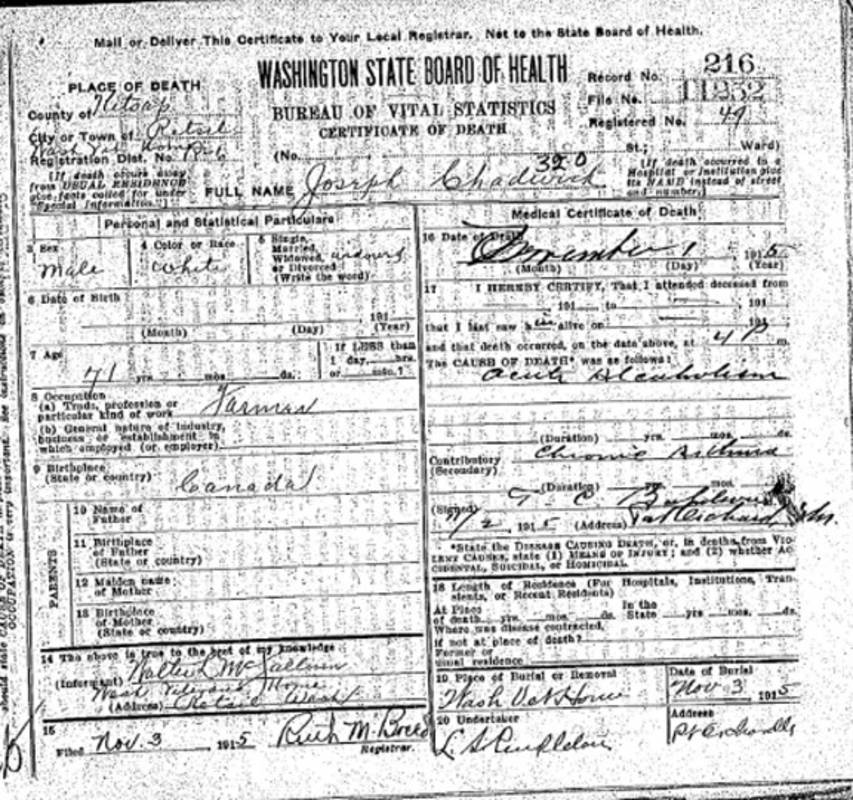 Mail or Deliver This Certificate to Your Local Registrar. Not to the State Board of Health.
WASHINGTON STATE BOARD OF HEALTH
BUREAU OF VITAL STATISTICS
CERTIFICATE OF DEATH
Record No. 216
File No. 11252
Registered No. 49
PLACE OF DEATH
County of Kitsap
City or Town of Retsil
Wash Vet Home
Registration Dist. No.
(No. St.; Ward)
(If death occurs away from USUAL RESIDENCE give facts called for under "Special Information.")
(If death occurred in a Hospital or Institution give its NAME instead of street and number.)
390
FULL NAME Joseph Chadwick
Personal and Statistical Particulars
3 Sex
Male
4 Color or Race
White
5 Single, Married, Widowed, or Divorced (Write the word)
widowed
6 Date of Birth
191
(Month) (Day) (Year)
7 Age
71 yrs. mos. ds.
If LESS than 1 day, hrs. or min.?
8 Occupation
(a) Trade, profession or particular kind of work Farmer
(b) General nature of industry, business or establishment in which employed (or employer)
9 Birthplace
(State or country) Canada
PARENTS
10 Name of Father
11 Birthplace of Father (State or country)
12 Maiden name of Mother
13 Birthplace of Mother (State or country)
14 The above is true to the best of my knowledge
(Informant) Walter L
Wash Veterans Home
(Address) Retsil Wash
15
Filed Nov. 3 1915 Ruth M. Breed
Registrar.
Medical Certificate of Death
16 Date of Death
November 1 1915
(Month) (Day) (Year)
17 I HEREBY CERTIFY, That I attended deceased from
191 to 191
that I last saw h alive on 191
and that death occurred, on the date above, at 4 P m.
The CAUSE OF DEATH* was as follows:
Acute Alcoholism
(Duration) yrs. mos. ds.
Contributory (Secondary) Chronic Asthma
(Duration) yrs. mos.
(Signed)
11/2 1915 (Address) Pt Orchard, Wn.
*State the DISEASE CAUSING DEATH, or, in deaths from VIOLENT CAUSES, state (1) MEANS OF INJURY; and (2) whether ACCIDENTAL, SUICIDAL, or HOMICIDAL.
18 Length of Residence (For Hospitals, Institutions, Transients, or Recent Residents)
At Place of death yrs. mos. ds. In the State yrs. mos. ds.
Where was disease contracted,
if not at place of death?
Former or usual residence
19 Place of Burial or Removal
Wash Vet Home
Date of Burial
Nov 3 1915
20 Undertaker
L S Pendleton
Address
Pt Orchard
OCCUPATION is very important.